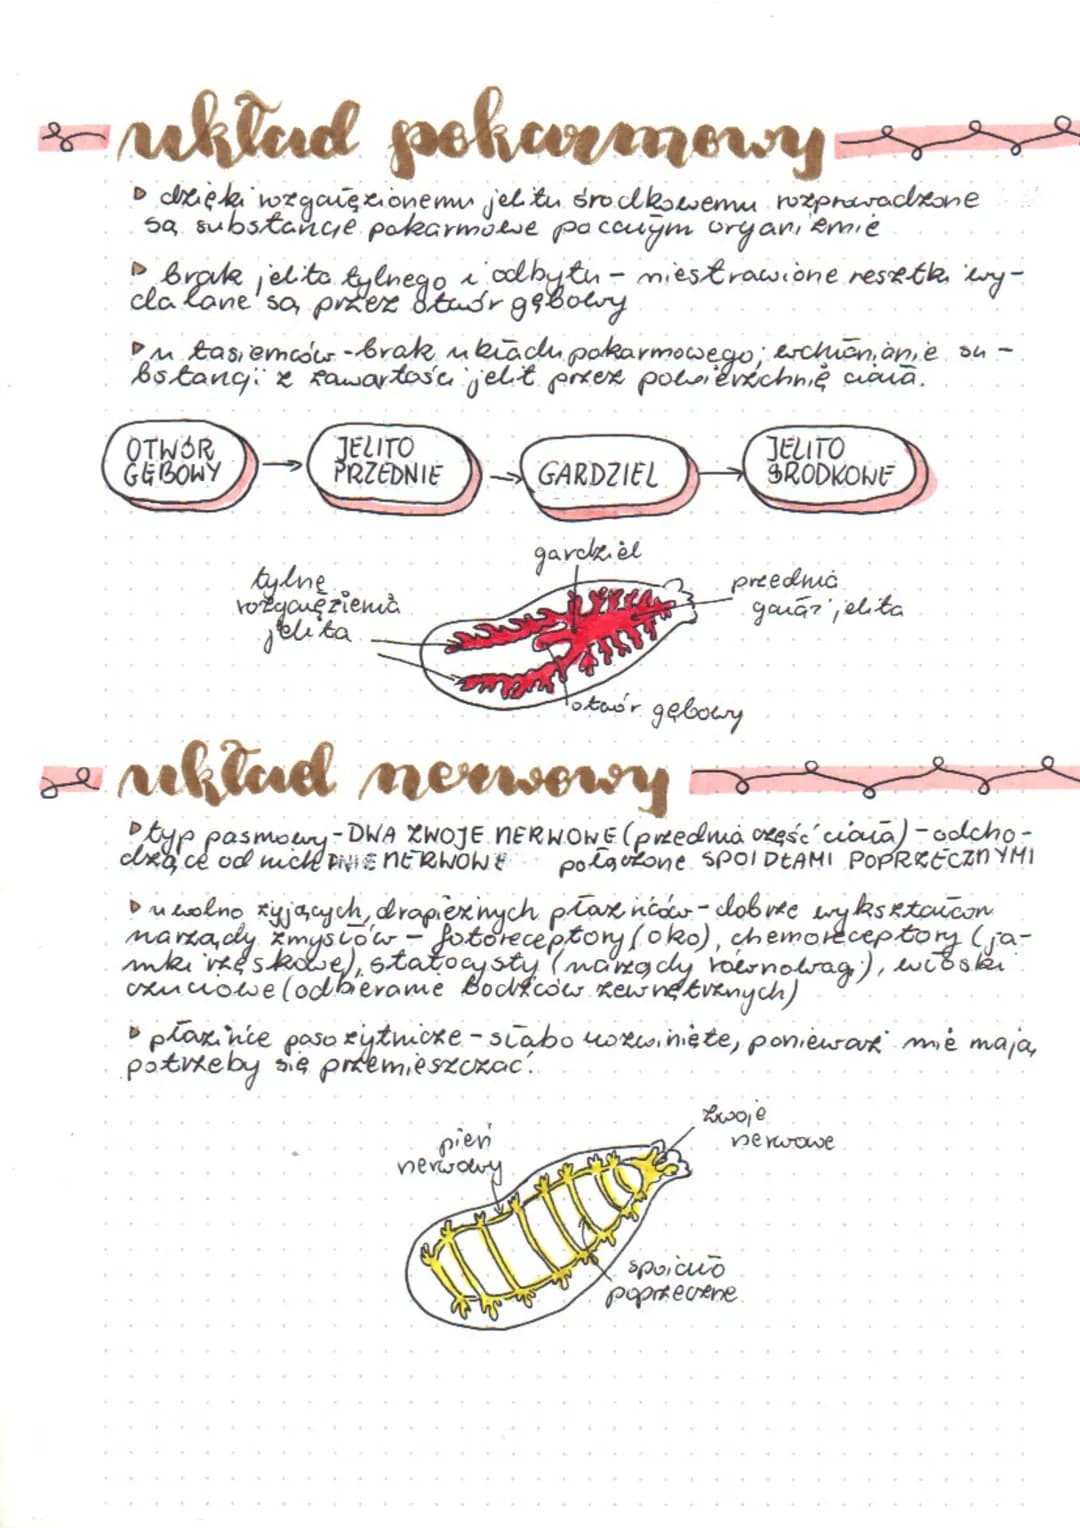 układ pokarmowy
▷ dzięki rozgałęzionemu jelitu środkowemu rozprowadzone
są substancje pokarmowe po całym organizmie
▷ brak jelita tylnego i odbytu - niestrawione resztki wy-
dalane są przez otwór gębowy
▷ u tasiemców - brak układu pokarmowego; wchłanianie su-
bstancji z zawartości jelit przez powierzchnię ciała.
OTWÓR
GĘBOWY
JELITO
PRZEDNIE
GARDZIEL
JELITO
ŚRODKOWE
gardziel
tylne
rozgałęzienia
jelita
przednia
gałąź jelita
otwór gębowy
układ nerwowy
▷ typ pasmowy - DWA ZWOJE NERWOWE (przednia część ciała) - odcho-
dzące od nich PNIE NERWOWE połączone SPOIDŁAMI POPRZECZNYMI
▷ u wolno żyjących, drapieżnych płazińców - dobrze wykształcon
narządy zmysłów - fotoreceptory (oko), chemoreceptory (ja-
mki rzęskowe), statocysty (narządy równowagi), włoski
czuciowe (odbieranie bodźców zewnętrznych)
▷ płazińce pasożytnicze - słabo rozwinięte, ponieważ nie mają
potrzeby się przemieszczać.
pień
nerwowy
zwoje
nerwowe
spoidło
poprzeczne